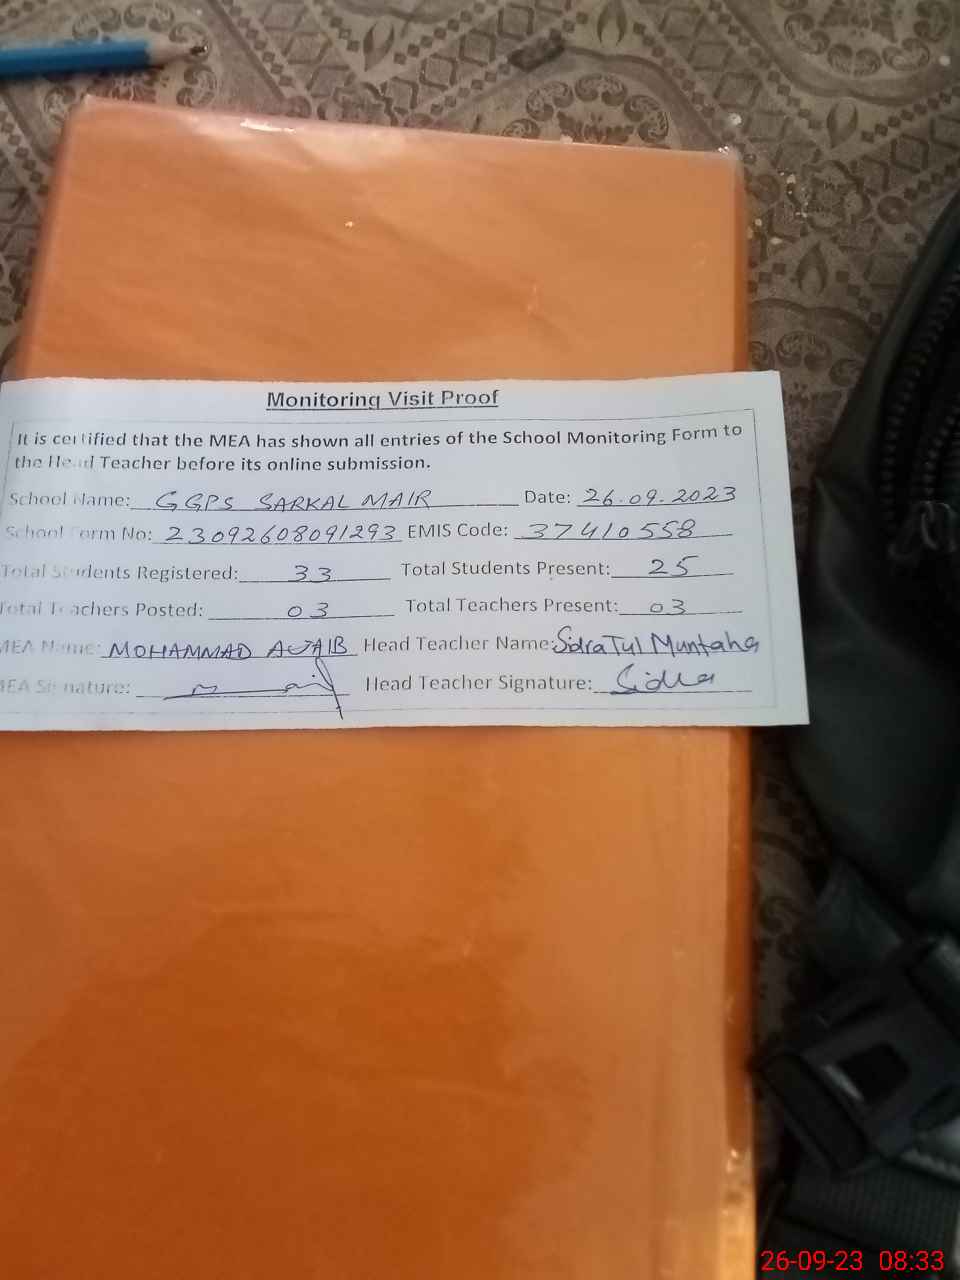 Monitoring Visit Proof
It is certified that the MEA has shown all entries of the School Monitoring Form to
the Head Teacher before its online submission.
School Name: GGPS SARKAL MAIR Date: 26.09.2023
School Form No: 23092608091293 EMIS Code: 37410558
Total Students Registered: 33 Total Students Present: 25
Total Teachers Posted: 03 Total Teachers Present: 03
MEA Name: MOHAMMAD AJAIB Head Teacher Name: SidraTul Muntaha
MEA Signature: Head Teacher Signature: Sidra
26-09-23 08:33